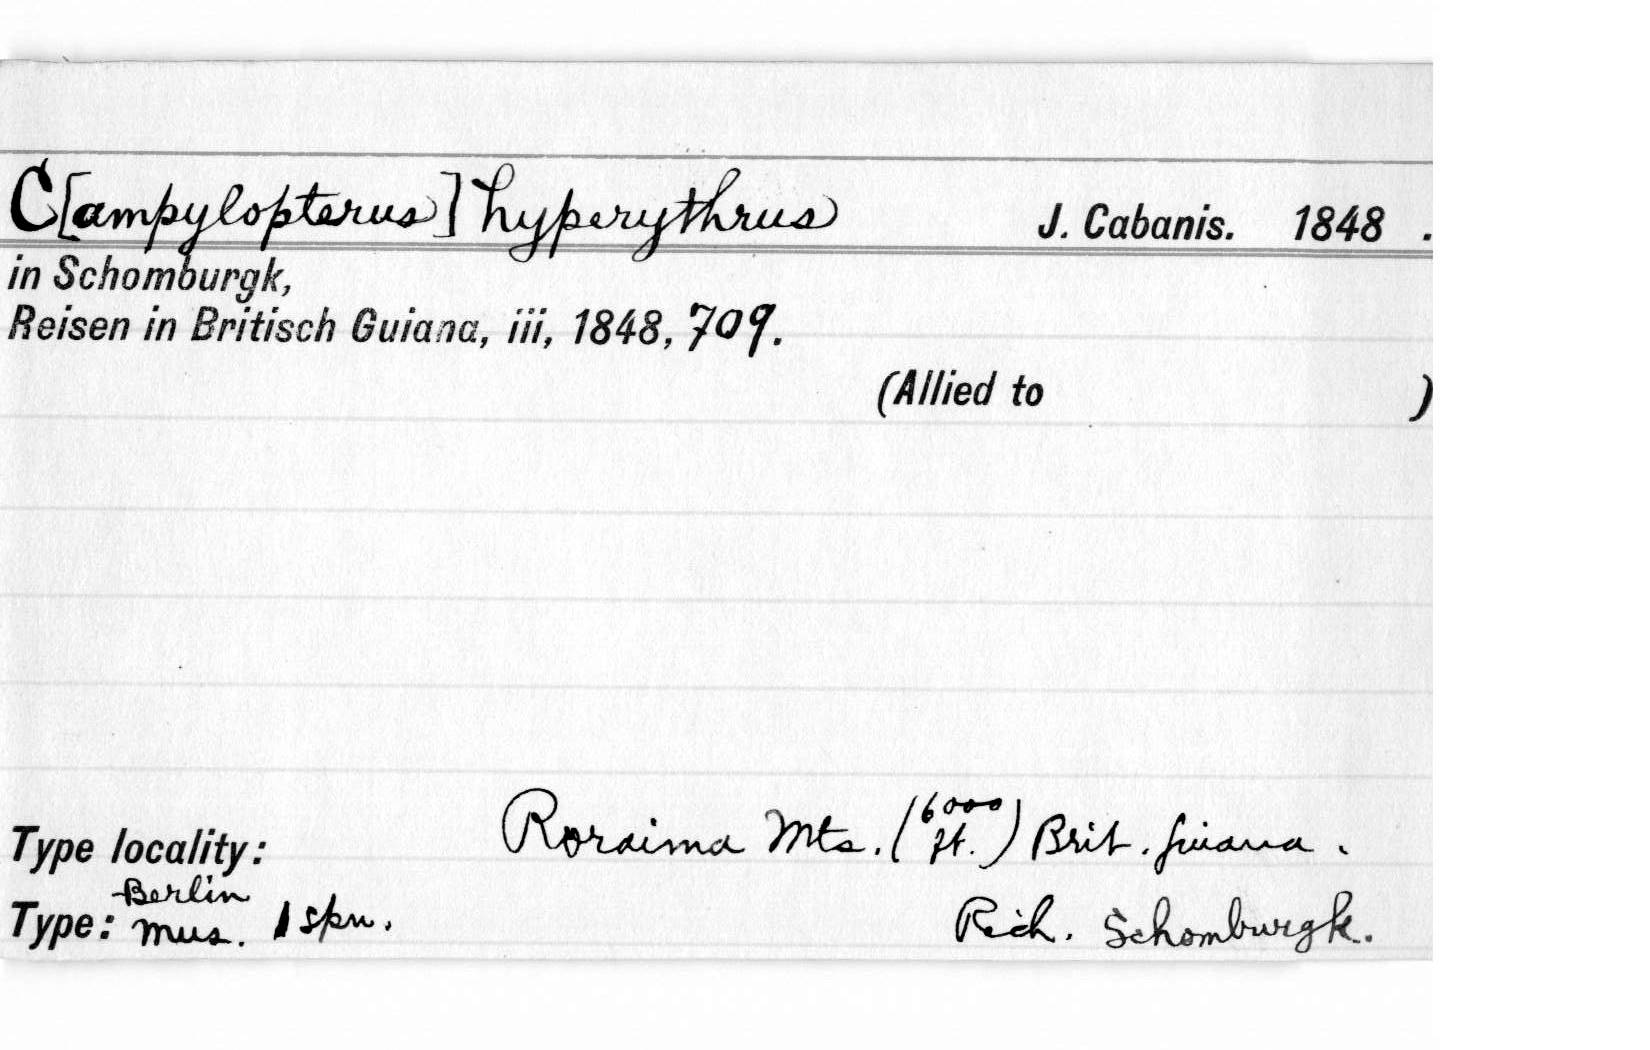 C[ampylopterus] hyperythrus J. Cabanis. 1848 .
in Schomburgk,
Reisen in Britisch Guiana, iii, 1848, 709.
(Allied to )
Type locality: Roraima Mts. (6000 ft.) Brit. Guiana .
Type: Berlin Mus. 1 spn. Rich. Schomburgk.